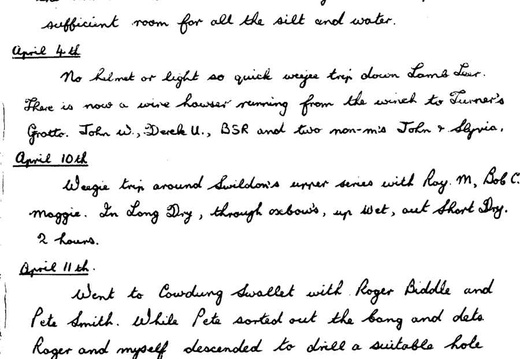 sufficient room for all the silt and water.
April 4th
No helmet or light so quick weejee trip down Lamb Leer.
There is now a wire hawser running from the winch to Turner's
Grotto. John W., Derek U., BSR and two non-m's John & Slyvia.
April 10th
Weegie trip around Swildon's upper series with Ray. M, Bob C.
Maggie. In Long Dry, through oxbow's, up Wet, out Short Dry.
2 hours.
April 11th.
Went to Cowdung Swallet with Roger Biddle and
Pete Smith. While Pete sorted out the bang and dets
Roger and myself descended to drill a suitable hole